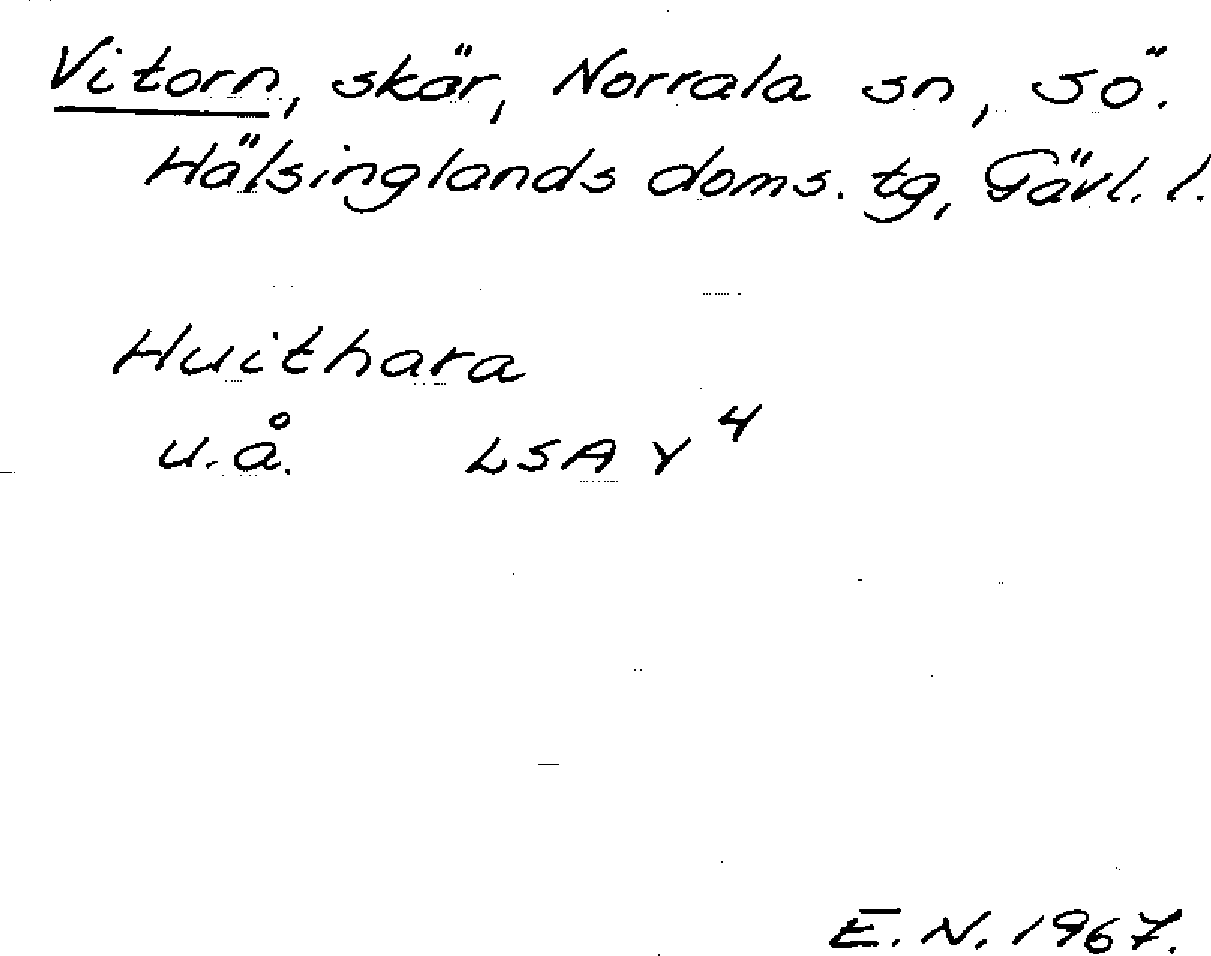 Vitorn, skär, Norrala sn, Sö.
Hälsinglands doms. tg, Gävl. l.
Huithara
u.å. LSA Y⁴
E.N. 1967.